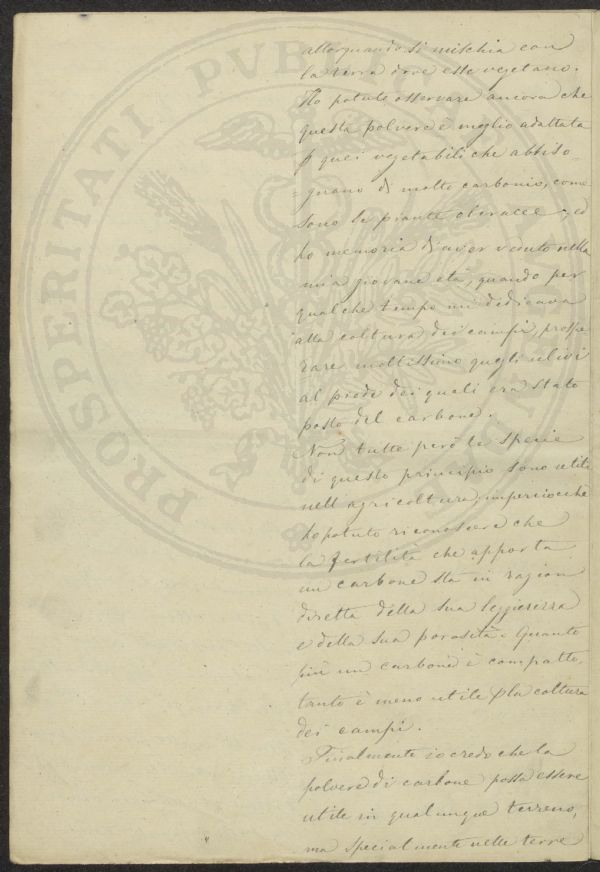 allorquando si mischia con
la terra dove esse vegetano.
Ho potuto osservare ancora che
questa polvere è meglio adattata
p quei vegetabili che abbiso-
=gnano di molto carbonio, come
sono le piante oleracee, ed
ho memoria di aver veduto nella
mia giovane età, quando per
qualche tempo mi dedicava
alla coltura dei campi, prospe
rare moltissimo quegli ulivi
al piede dei quali era stato
posto del carbone.
Non tutte però le specie
di questo principio sono utili
nell'agricoltura, imperciocchè
ho potuto riconoscere che
la fertilità che apporta
un carbone sta in ragion
diretta della sua leggierezza
e della sua porosità. Quanto
più un carbone è compatto
tanto è meno utile p la coltura
dei campi.
Finalmente io credo che la
polvere di carbone possa essere
utile in qualunque terreno,
ma specialmente nelle terre
PROSPERITATI PVBLIC